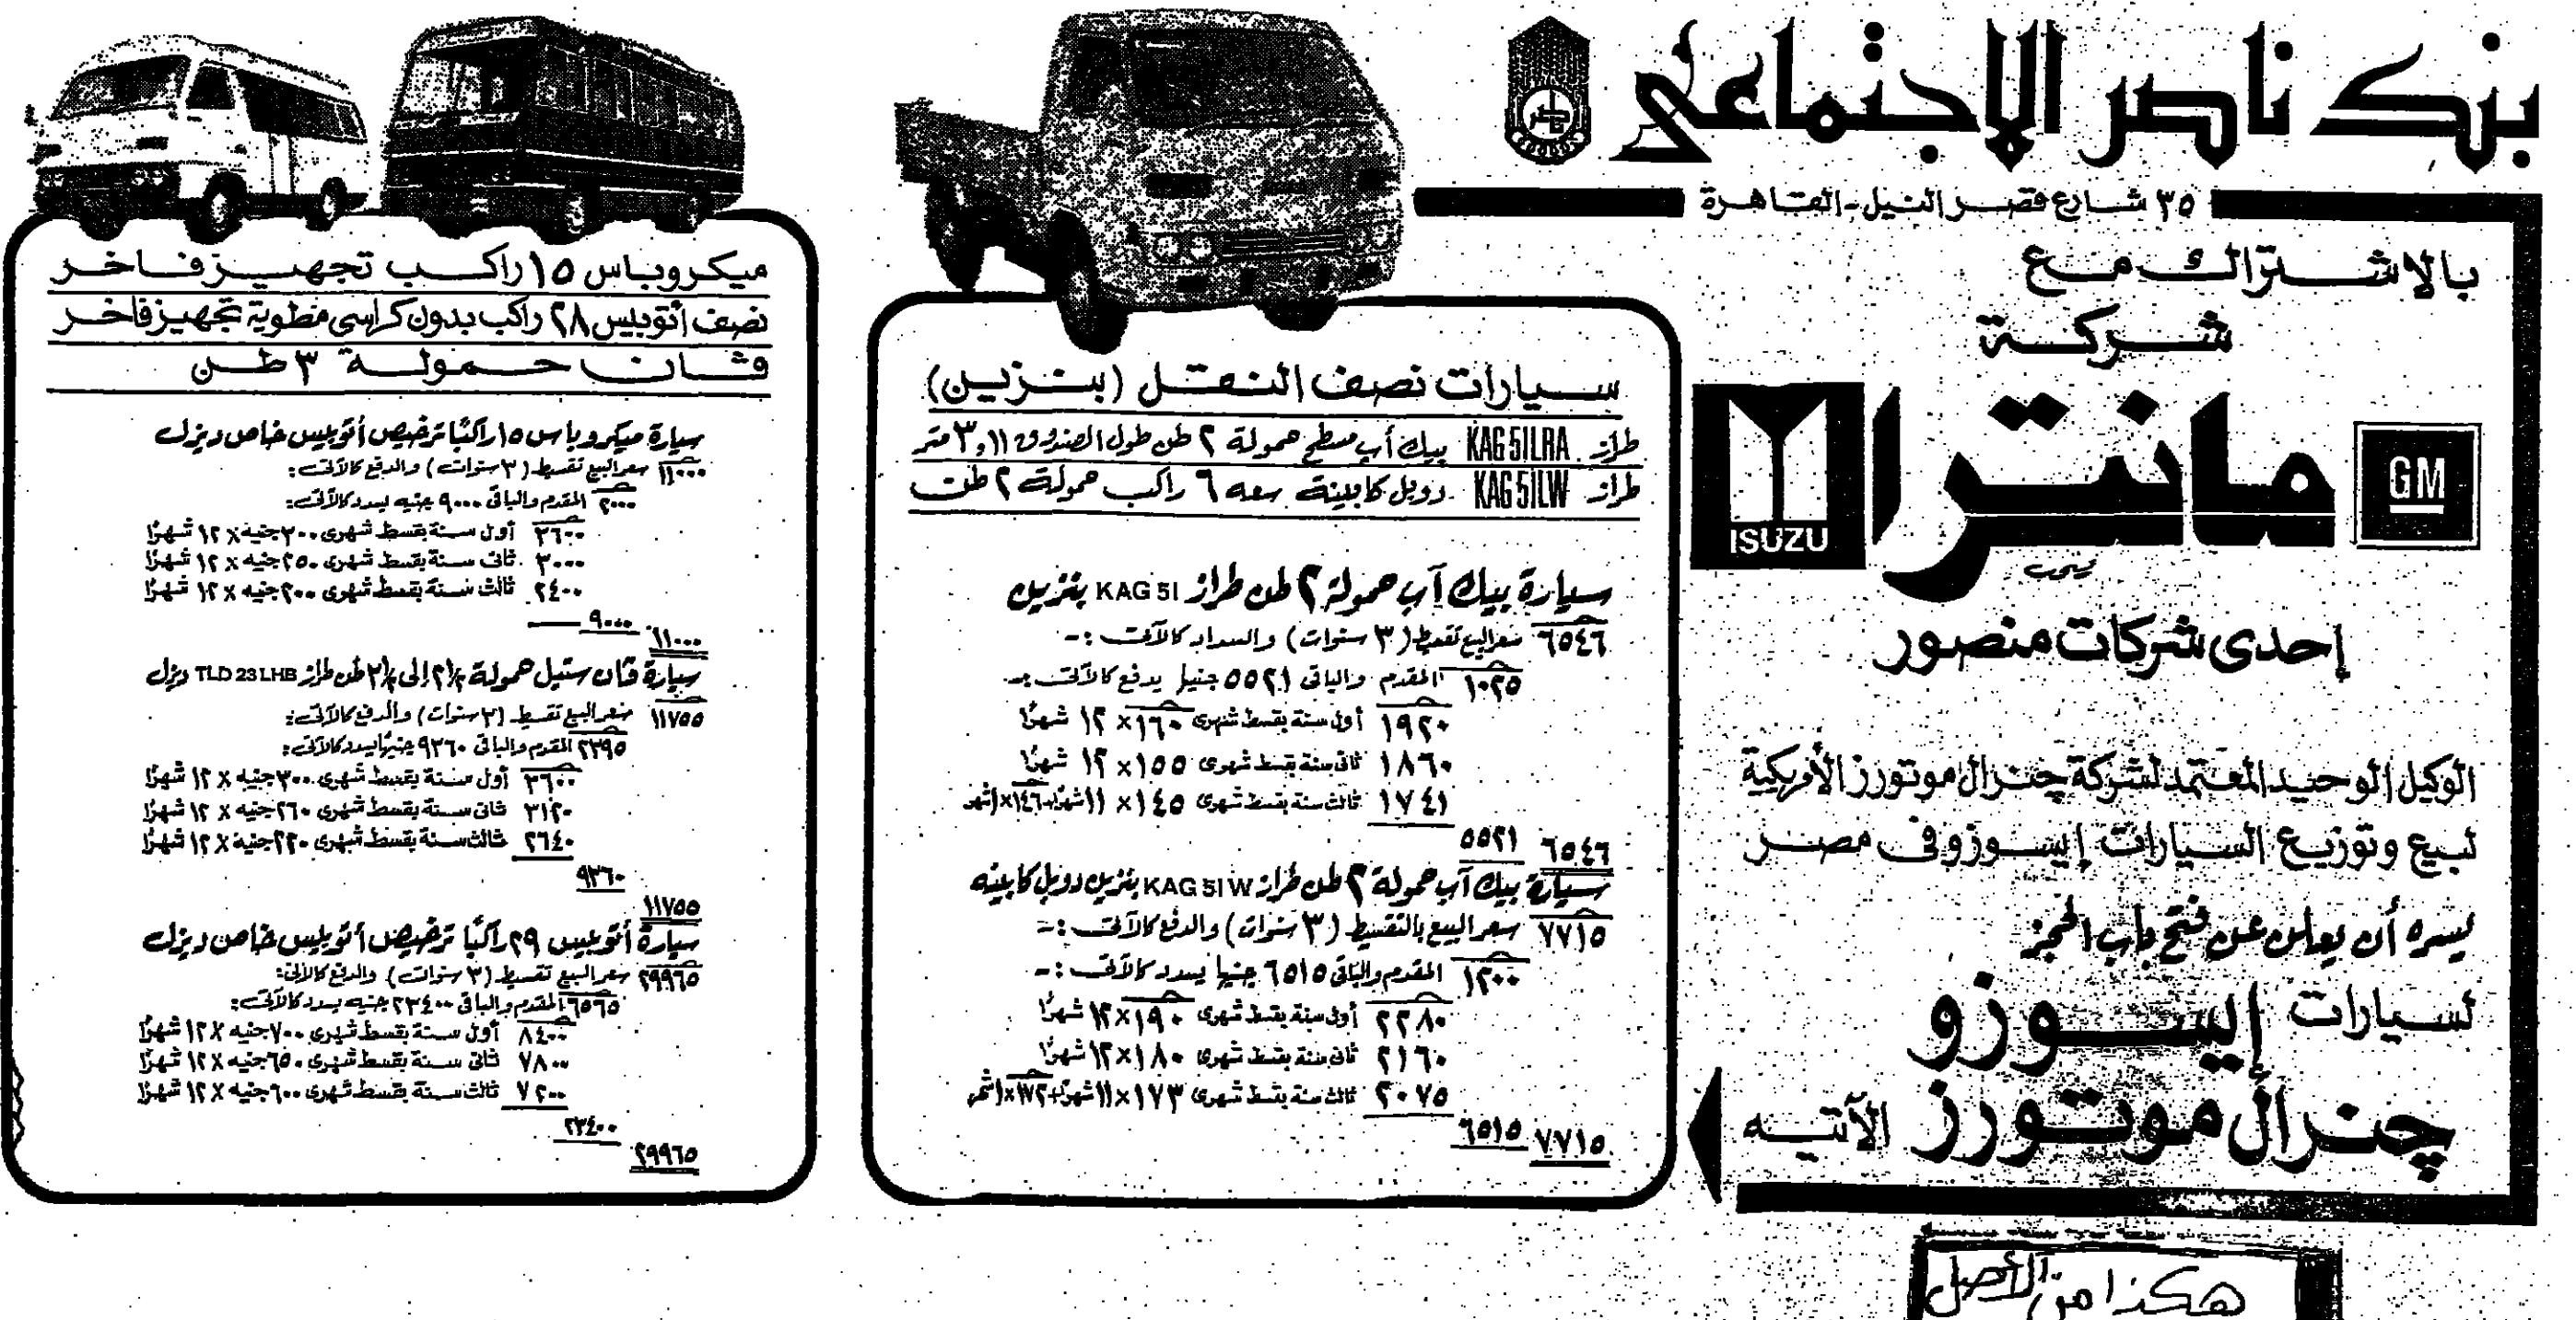 بنك ناصر الاجتماعى
٣٥ شارع قصر النيل - القاهرة
بالاشتراك مع
شركة
GM
مانترا
ISUZU
إحدى شركات منصور
الوكيل الوحيد المعتمد لشركة چنرال موتورز الأمريكية
لبيع وتوزيع السيارات إيسوزو فى مصر
يسره أن يعلن عن فتح باب الحجز
لسيارات إيسوزو
چنرال موتورز الآتيه
سيارات نصف النقل (بنزين)
طراز KAG 51LRA بيك أب مسطح حمولة ٢ طن طول الصندوق ٣٫١١ متر
طراز KAG 51LW دوبل كابينة سعه ٦ راكب حمولة ٢ طن
سيارة بيك آب حمولة ٢ طن طراز KAG 51 بنزين
٦٥٤٦ سعر البيع تقسيط (٣ سنوات) والسداد كالآتى :-
١٠٢٥ المقدم والباقى ٥٥٢١ جنيها يدفع كالآتى :-
١٩٢٠ أولى سنة بقسط شهرى ١٦٠ × ١٢ شهرًا
١٨٦٠ ثانى سنة بقسط شهرى ١٥٥ × ١٢ شهرًا
١٧٤١ ثالث سنة بقسط شهرى ١٤٥ × ١١ شهرًا + ١٤٦ × ١ شهر
٥٥٢١
٦٥٤٦
سيارة بيك آب حمولة ٢ طن طراز KAG 51 W بنزين دوبل كابينه
٧٧١٥ سعر البيع بالتقسيط (٣ سنوات) والدفع كالآتى :-
١٢٠٠ المقدم والباقى ٦٥١٥ جنيها يسدد كالآتى :-
٢٢٨٠ أولى سنة بقسط شهرى ١٩٠ × ١٢ شهرًا
٢١٦٠ ثانى سنة بقسط شهرى ١٨٠ × ١٢ شهرًا
٢٠٧٥ ثالث سنة بقسط شهرى ١٧٣ × ١١ شهرًا + ١٧٢ × ١ شهر
٦٥١٥
٧٧١٥
ميكروباس ١٥ راكب تجهيز فاخر
نصف أتوبيس ٢٨ راكب بدون كراسى مطوية تجهيز فاخر
ڤان حمولة ٣ طن
سيارة ميكروباس ١٥ راكبًا ترخيص أتوبيس خاص ديزل
١١٠٠٠ سعر البيع تقسيط (٣ سنوات) والدفع كالآتى :
٢٠٠٠ المقدم والباقى ٩٠٠٠ جنيه يسدد كالآتى :
٣٦٠٠ أول سنة بقسط شهرى ٣٠٠ جنيه × ١٢ شهرًا
٣٠٠٠ ثانى سنة بقسط شهرى ٢٥٠ جنيه × ١٢ شهرًا
٢٤٠٠ ثالث سنة بقسط شهرى ٢٠٠ جنيه × ١٢ شهرًا
٩٠٠٠
١١٠٠٠
سيارة ڤان ستيل حمولة ٢/١ ٢ إلى طن طراز TLD 23 LHB ديزل
١١٧٥٥ سعر البيع تقسيط (٣ سنوات) والدفع كالآتى :
٢٣٩٥ المقدم والباقى ٩٣٦٠ جنيهًا يسدد كالآتى :
٣٦٠٠ أول سنة بقسط شهرى ٣٠٠ جنيه × ١٢ شهرًا
٣١٢٠ ثانى سنة بقسط شهرى ٢٦٠ جنيه × ١٢ شهرًا
٢٦٤٠ ثالث سنة بقسط شهرى ٢٢٠ جنيه × ١٢ شهرًا
٩٣٦٠
١١٧٥٥
سيارة أتوبيس ٢٩ راكبًا ترخيص أتوبيس خاص ديزل
٢٩٩٦٥ سعر البيع تقسيط (٣ سنوات) والدفع كالآتى :
٦٥٦٥ المقدم والباقى ٢٣٤٠٠ جنيه يسدد كالآتى :
٨٤٠٠ أول سنة بقسط شهرى ٧٠٠ جنيه × ١٢ شهرًا
٧٨٠٠ ثانى سنة بقسط شهرى ٦٥٠ جنيه × ١٢ شهرًا
٧٢٠٠ ثالث سنة بقسط شهرى ٦٠٠ جنيه × ١٢ شهرًا
٢٣٤٠٠
٢٩٩٦٥
هكذا من الأصل